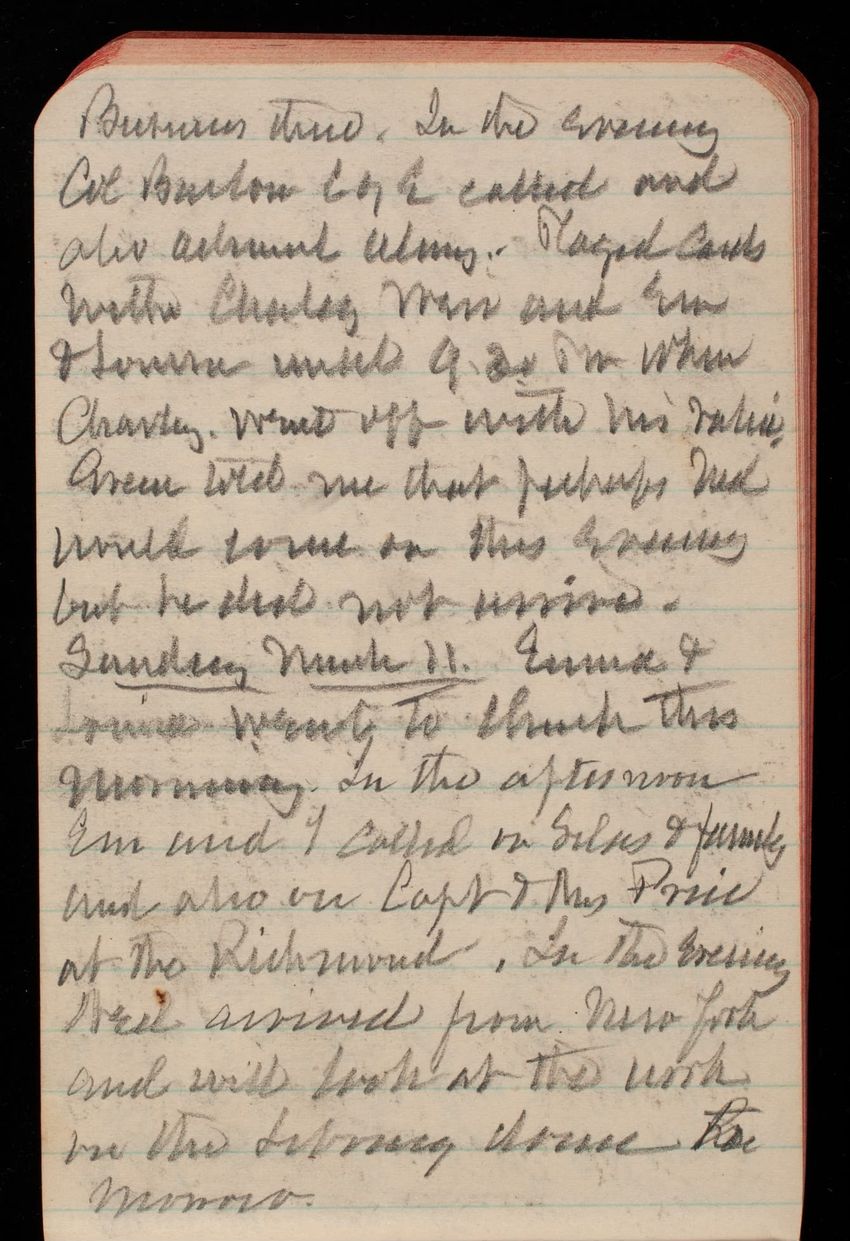 Business time. In the evening
Col Barlow C of E called and
also Adams. Played Cards
with Charley Warr and Em
& Louise until 9 30 Pm When
Charley. went off with his valise,
Green told me that perhaps Ned
would come on this Evening
but he did not arrive.
Sunday March 11. Emma &
Louise went to Church this
Morning. In the afternoon
Em and I called on Silas & family
and also on Capt & Mrs Price
at the Richmond. In the Evening
Ned arrived from New York
and will look at the work
on the Library dome to
Morrow.